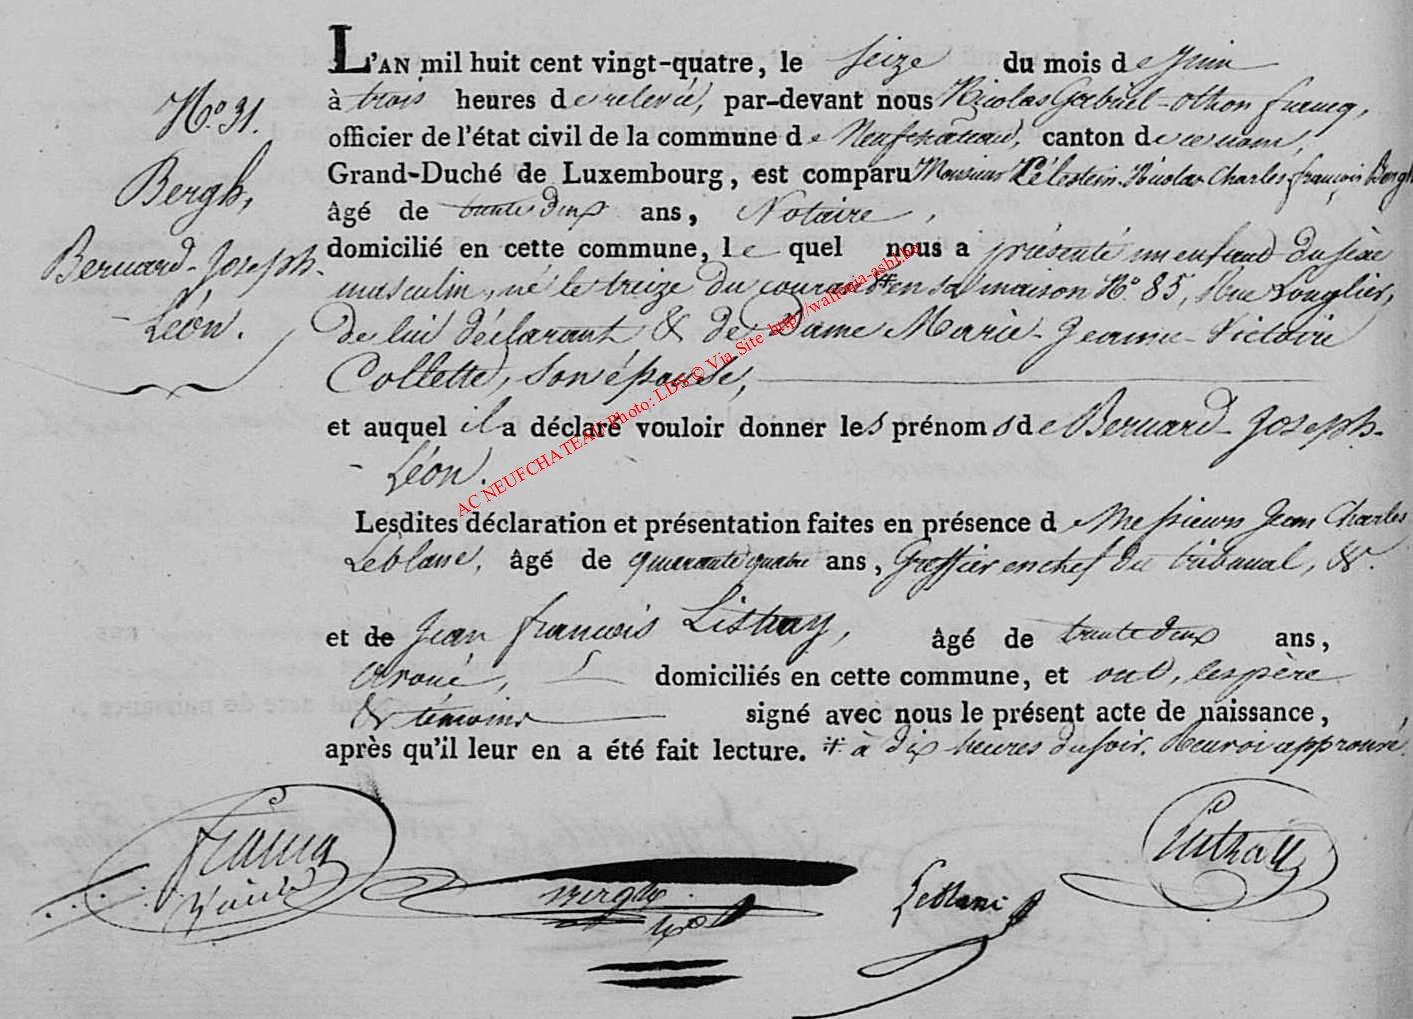 L'AN mil huit cent vingt-quatre, le seize du mois de Juin
à trois heures de relevée, par-devant nous Nicolas Gabriel-Othon francq,
officier de l'état civil de la commune de Neufchateau, canton de ce nom,
Grand-Duché de Luxembourg, est comparu Monsieur Célestin Nicolas Charles françois Bergh
âgé de trente deux ans, Notaire,
domicilié en cette commune, le quel nous a présenté un enfant du sèxe
masculin, né le treize du courant en sa maison No. 85, Rue Longlier,
de lui déclarant & de Dame Marie-Jeanne-Victoire
Collette, son épouse,
et auquel il a déclaré vouloir donner les prénoms de Bernard-Joseph-
-Léon.
Lesdites déclaration et présentation faites en présence de Messieurs Jean Charles
Leblanc, âgé de quarante quatre ans, Greffier en chef du tribunal, &.
et de Jean françois Listray, âgé de trente deux ans,
avoué, domiciliés en cette commune, et ont, les père
& témoins signé avec nous le présent acte de naissance,
après qu'il leur en a été fait lecture. # à dix heures du soir. Renvoi approuvé.
No. 31.
Bergh,
Bernard-Joseph-
-Léon.
francq
Bergh
Leblanc
AC NEUFCHATEAU Photo: LDS © Via Site http://wallonia-asbl.be